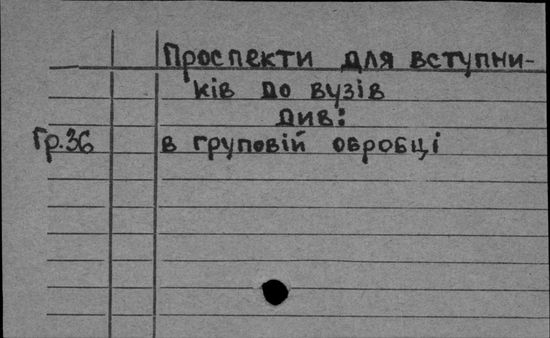 Проспекти для вступни-
ків до вузів
Див:
Гр.36 в груповій обробці